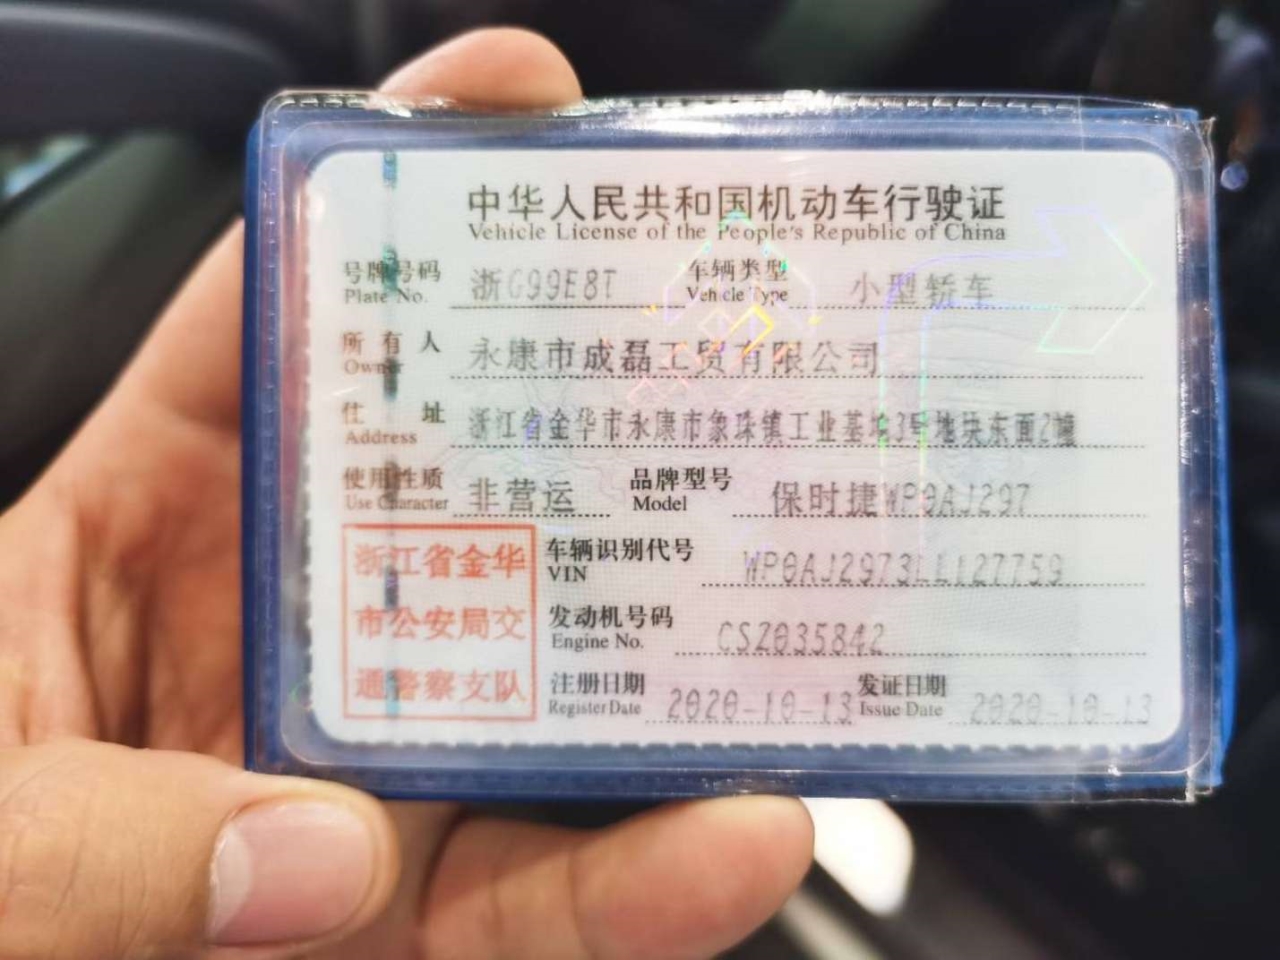 中华人民共和国机动车行驶证
Vehicle License of the People's Republic of China
号牌号码 浙G99E8T 车辆类型 小型轿车
Plate No. Vehicle Type
所有人 永康市成磊工贸有限公司
Owner
住址 浙江省金华市永康市象珠镇工业基地3号地块东面2幢
Address
使用性质 非营运 品牌型号 保时捷WP0AJ297
Use Character Model
浙江省金华
市公安局交
通警察支队
车辆识别代号 WP0AJ2973LL127759
VIN
发动机号码 CSZ035842
Engine No.
注册日期 2020-10-13 发证日期 2020-10-13
Register Date Issue Date